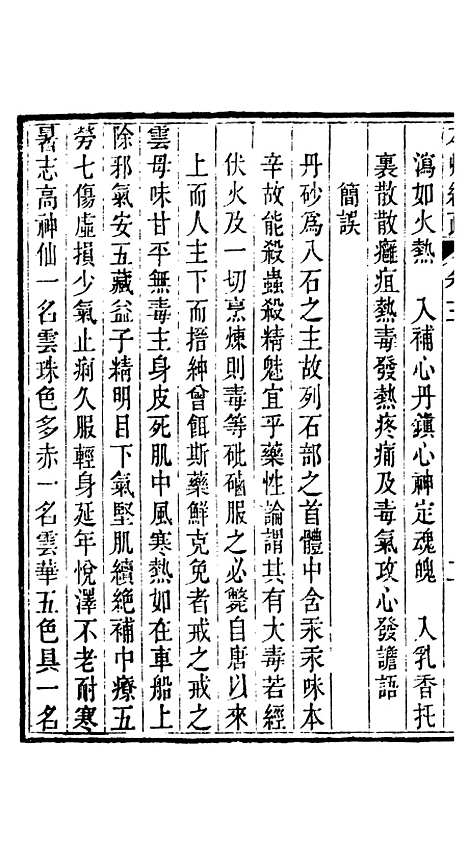 瀉如火熱　入補心丹鎮心神定魂魄　入乳香托
裏散散癰疽熱毒發熱疼痛及毒氣攻心發譫語
簡誤
丹砂爲八石之主故列石部之首體中含汞汞味本
辛故能殺蟲殺精魅宜乎藥性論謂其有大毒若經
伏火及一切烹煉則毒等砒磠服之必斃自唐以來
上而人主下而搢紳曾餌斯藥鮮克免者戒之戒之
雲母味甘平無毒主身皮死肌中風寒熱如在車船上
除邪氣安五藏益子精明目下氣堅肌續絶補中療五
勞七傷虛損少氣止痢久服輕身延年悅澤不老耐寒
暑志高神仙一名雲珠色多赤一名雲華五色具一名